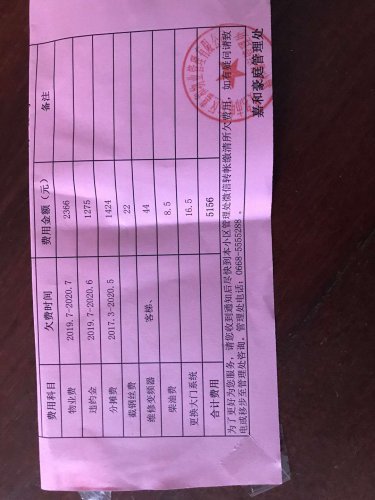 费用科目 欠费时间 费用金额（元） 备注
物业费 2019.7-2020.7 2366
违约金 2019.7-2020.6 1275
分摊费 2017.3-2020.5 1424
截钢丝费 22
维修变频器 客梯、 44
柴油费 8.5
更换大门系统 16.5
合计费用 5156
为了更好为您服务，请您收到通知后尽快到本小区管理处微信转帐缴清所欠费用，如有疑问请致
电或移步至管理处咨询。管理处电话：0668-5555288。
嘉和豪庭管理处